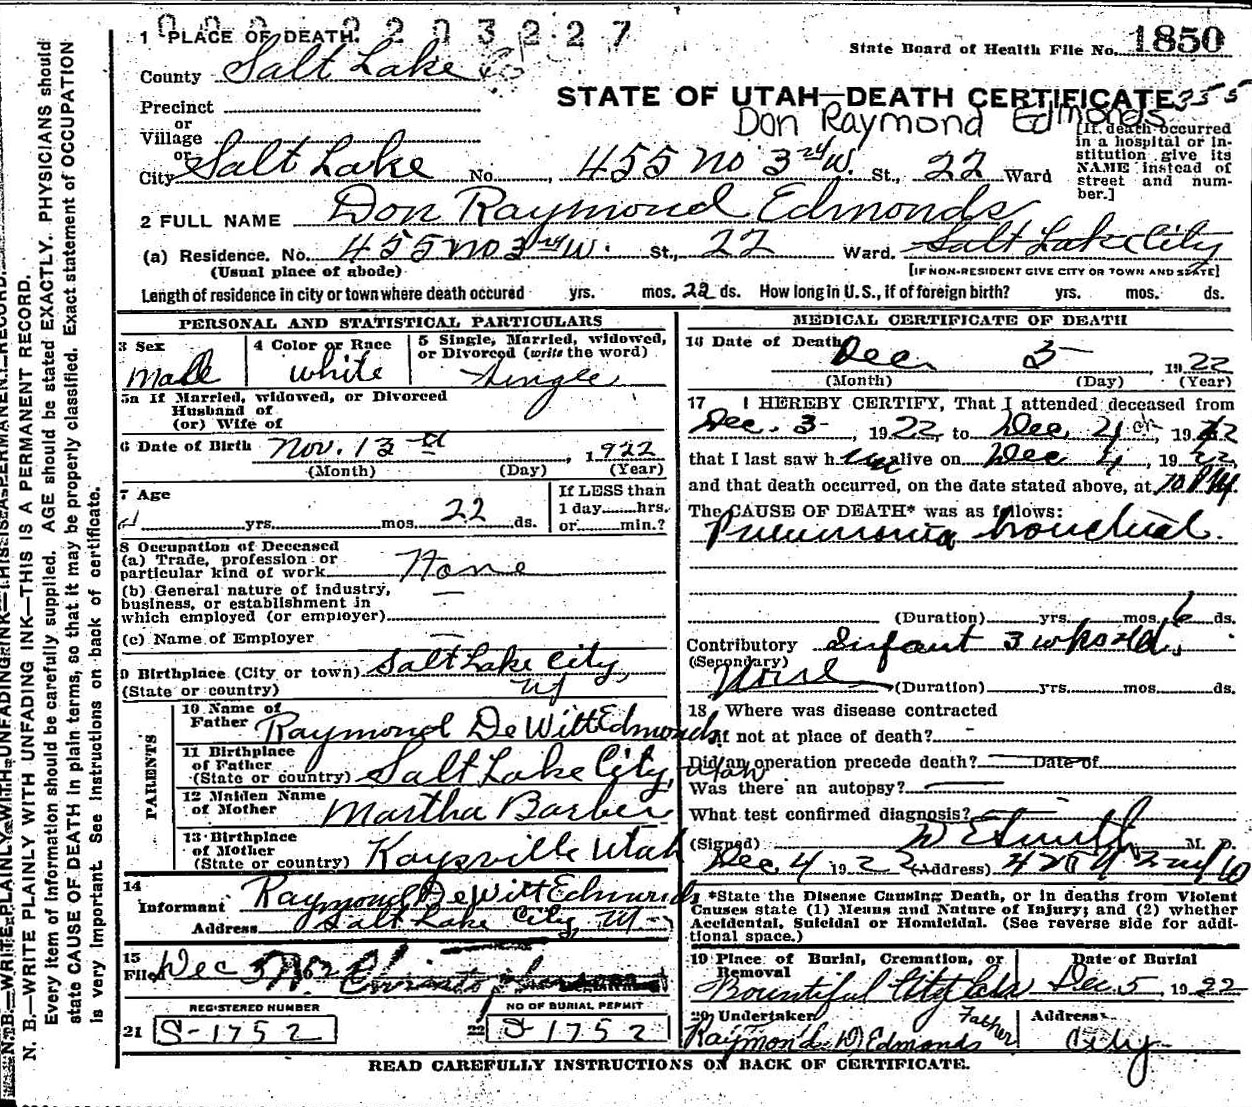 0 0 0 2 2 0 3 2 2 7
1 PLACE OF DEATH.
State Board of Health File No. 1850
County Salt Lake Co
STATE OF UTAH—DEATH CERTIFICATE 355
Precinct
or
Village
or
Don Raymond Edmonds
City Salt Lake No. 455 no 3rd W. St., 22 Ward
[If death occurred in a hospital or institution give its NAME instead of street and number.]
2 FULL NAME Don Raymond Edmonds
(a) Residence. No. 455 no 3rd W. St., 22 Ward. Salt Lake City
(Usual place of abode)
[IF NON-RESIDENT GIVE CITY OR TOWN AND STATE]
Length of residence in city or town where death occured yrs. mos. 22 ds. How long in U.S., if of foreign birth? yrs. mos. ds.
PERSONAL AND STATISTICAL PARTICULARS
3 Sex
Male
4 Color or Race
white
5 Single, Married, widowed, or Divorced (write the word)
Single
5a If Married, widowed, or Divorced
Husband of
(or) Wife of
6 Date of Birth Nov. 13 , 1922
(Month) (Day) (Year)
7 Age
yrs. mos. 22 ds.
If LESS than
1 day hrs.
or min.?
8 Occupation of Deceased
(a) Trade, profession or
particular kind of work None
(b) General nature of industry,
business, or establishment in
which employed (or employer)
(c) Name of Employer
9 Birthplace (City or town) Salt Lake City,
(State or country) Ut
PARENTS
10 Name of
Father Raymond DeWitt Edmonds
11 Birthplace
of Father
(State or country) Salt Lake City, Utah
12 Maiden Name
of Mother Martha Barber
13 Birthplace
of Mother
(State or country) Kaysville Utah
14
Informant Raymond DeWitt Edmonds
Address Salt Lake City Ut
15
Filed Dec 5
REGISTERED NUMBER
21 S-1752
NO OF BURIAL PERMIT
22 S-1752
MEDICAL CERTIFICATE OF DEATH
16 Date of Death
Dec 3 1922
(Month) (Day) (Year)
17 I HEREBY CERTIFY, That I attended deceased from
Dec. 3 , 1922, to Dec 4 , 1922
that I last saw him alive on Dec 4 , 1922,
and that death occurred, on the date stated above, at 10 PM.
The CAUSE OF DEATH* was as follows:
Pneumonia bronchial.
(Duration) yrs. mos. 6 ds.
Contributory Infant 3 wks old.
(Secondary)
(Duration) yrs. mos. ds.
18 Where was disease contracted
if not at place of death?
Did an operation precede death? Date of
Was there an autopsy?
What test confirmed diagnosis?
(Signed) M. D.
Dec 4 1922 (Address)
*State the Disease Causing Death, or in deaths from Violent
Causes state (1) Means and Nature of Injury; and (2) whether
Accidental, Suicidal or Homicidal. (See reverse side for addi-
tional space.)
19 Place of Burial, Cremation, or Removal
Bountiful City
Date of Burial
Dec. 5, 1922
20 Undertaker Father
Raymond D Edmonds
Address
City
READ CAREFULLY INSTRUCTIONS ON BACK OF CERTIFICATE.
N. B.—WRITE PLAINLY WITH UNFADING INK—THIS IS A PERMANENT RECORD.
N. B.—WRITE PLAINLY WITH UNFADING INK—THIS IS A PERMANENT RECORD.
Every item of information should be carefully supplied. AGE should be stated EXACTLY. PHYSICIANS should
state CAUSE OF DEATH in plain terms, so that it may be properly classified. Exact statement of OCCUPATION
is very important. See instructions on back of certificate.